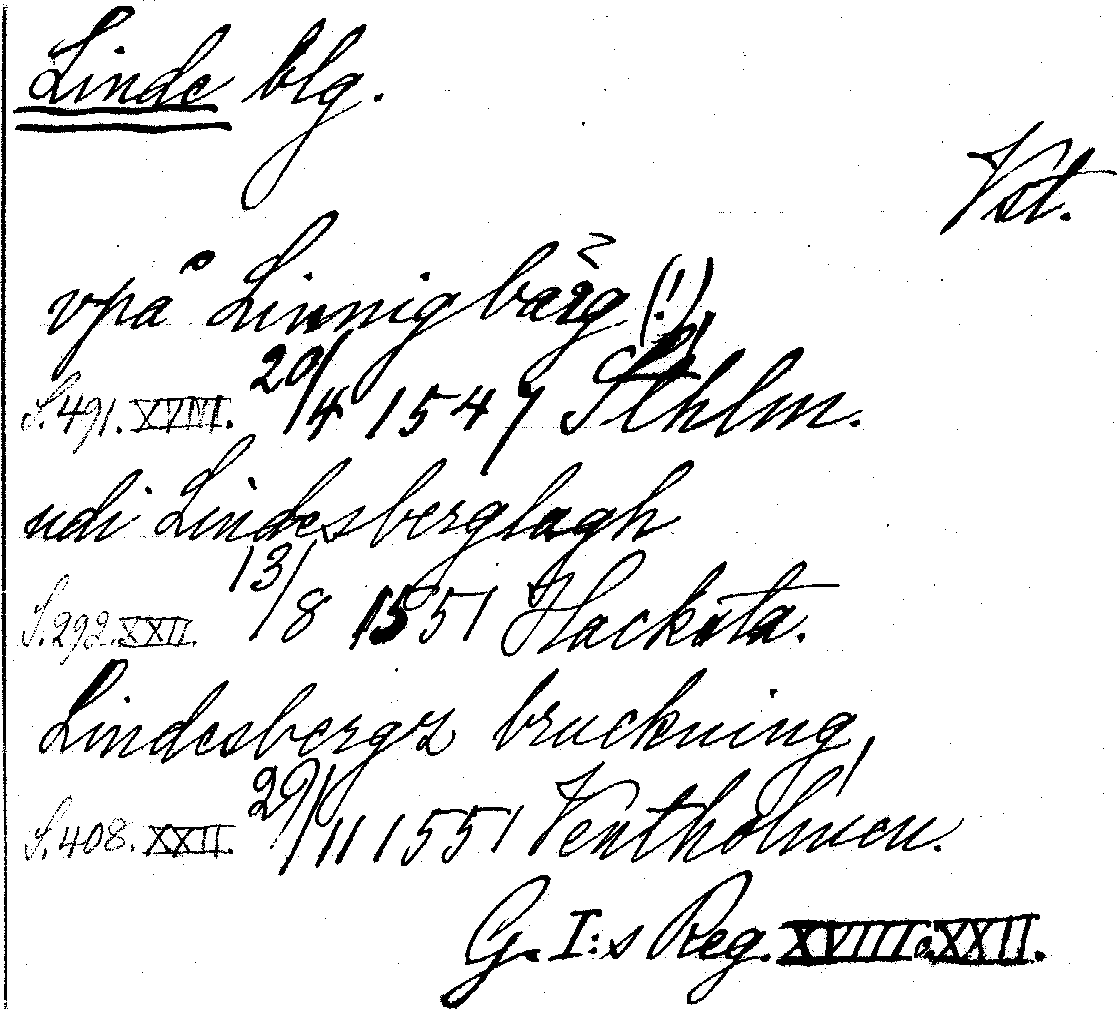 Linde blg.
Vst.
vpå Linnigbärg (!)
S. 491. XVIII. 20/4 1547 Sthlm.
udi Lindesberglagh
S. 292. XXII. 13/8 1551 Hacksta.
Lindesbergz bruckning,
S. 408. XXII. 29/11 1551 Ventholmen.
G. I:s Reg. XVIII o. XXII.